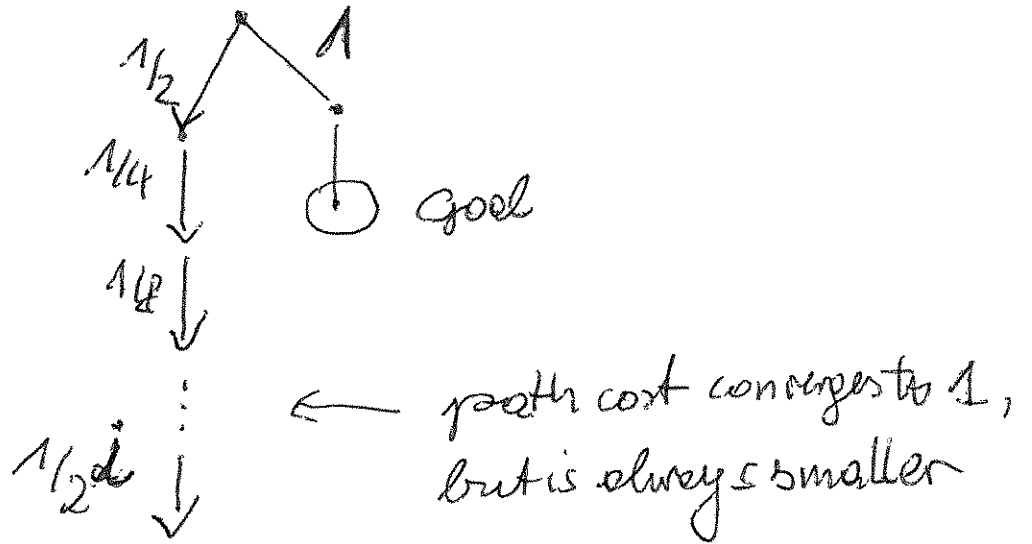 1/2
1
1/4
Goal
1/8
path cost converges to 1,
but is always smaller